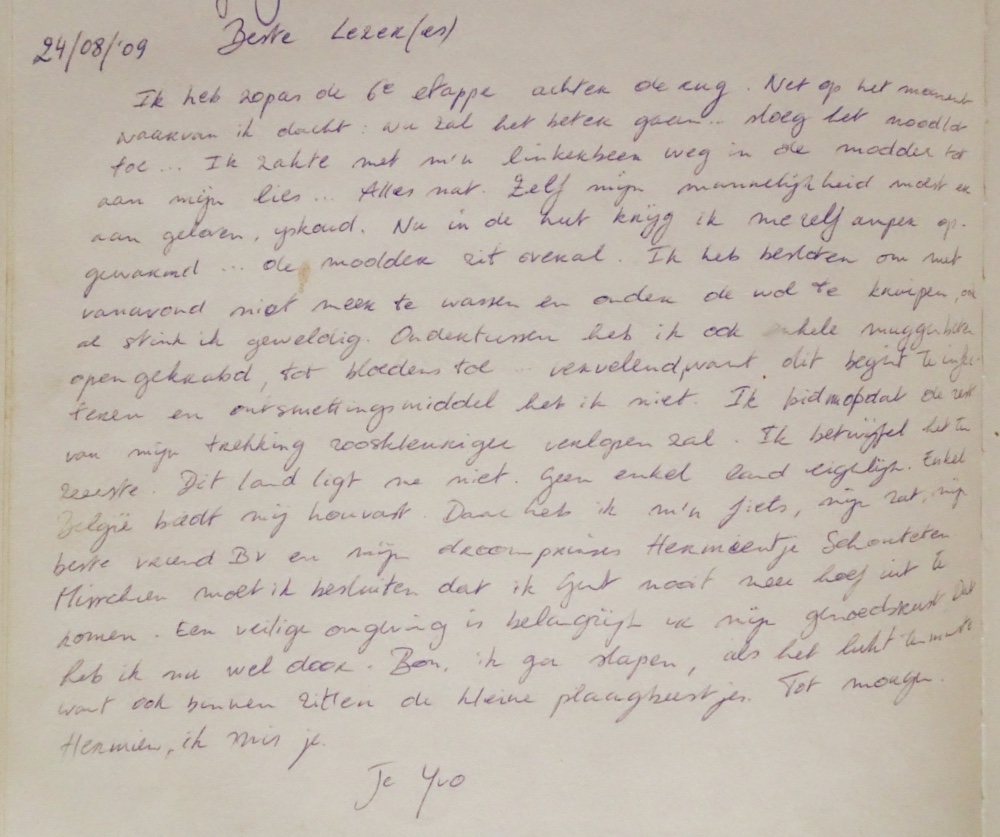 24/08/'09 Beste Lezer(es)
Ik heb zopas de 6e etappe achter de rug. Net op het moment
waarvan ik dacht: nu zal het beter gaan... sloeg het noodlot
toe... Ik zakte met m'n linkerbeen weg in de modder tot
aan mijn lies... Alles nat. Zelf mijn mannelijkheid moest er
aan geloven, yskoud. Nu in de hut krijg ik mezelf amper op-
gewarmd ... de modder zit overal. Ik heb besloten om met
vanavond niet meer te wassen en onder de wol te kruipen,
al stink ik geweldig. Ondertussen heb ik ook enkele muggenbeten
opengekrabd, tot bloedens toe ... vervelend, want dit begint te infec-
teren en ontsmettingsmiddel heb ik niet. Ik bid opdat de rest
van mijn trekking rooskleuriger verlopen zal. Ik betwijfel het ten
zeerste. Dit land ligt me niet. Geen enkel land eigenlijk. Enkel
België biedt mij houvast. Daar heb ik m'n fiets, mijn kat, mijn
beste vriend BV en mijn droomprinses Hermientje Schouteten
Misschien moet ik besluiten dat ik Gent nooit meer hoef uit te
komen. Een veilige omgeving is belangrijk vr mijn gemoedsrust. Dat
heb ik nu wel door. Bon, ik ga slapen, als het lukt tenminste
want ook binnen zitten de kleine plaagbeestjes. Tot morgen.
Hermien, ik mis je.
Je Yvo